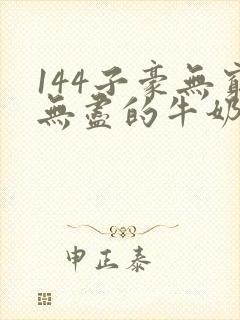 144子豪無窮
無盡的牛奶
申正泰